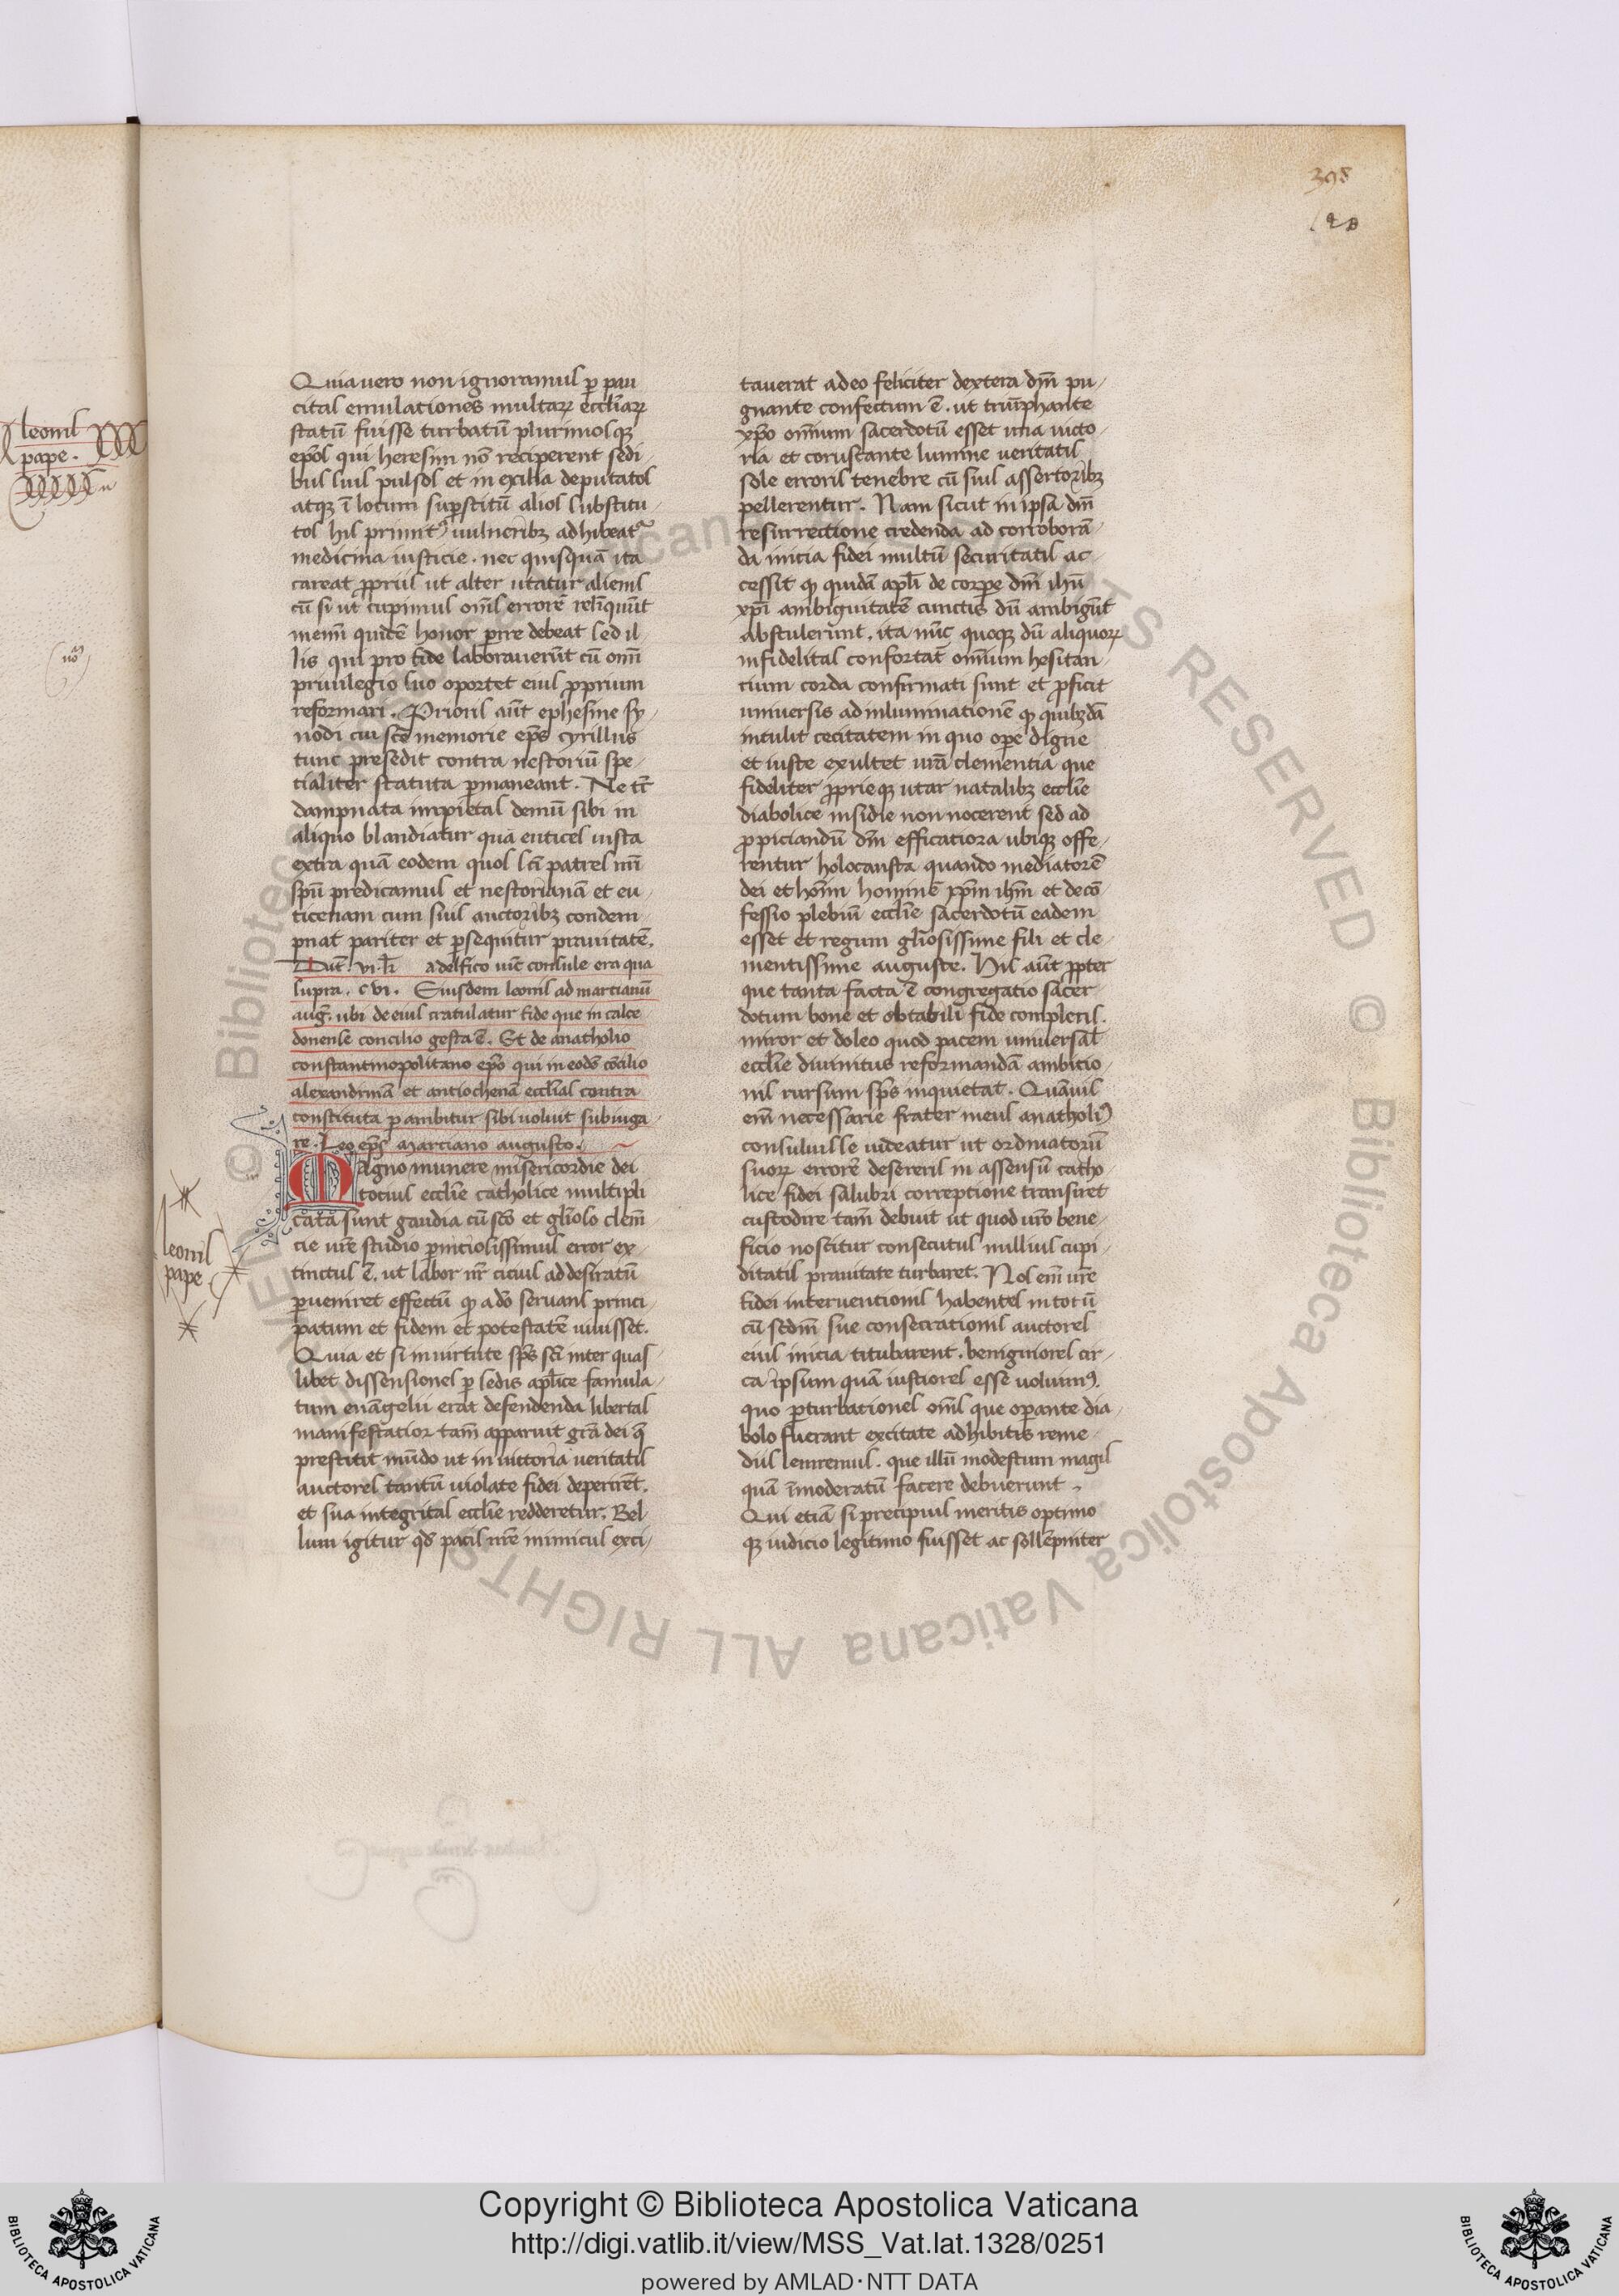 leonis
pape.
no
398
Quia vero non ignoramus p̱ pau
citas emulationes multaꝝ eccl̄iaꝝ
statū fuisse turbatū plurimosqꝫ
ep̄os qui heresim nō reciperent sedi
bus suis pulsos et in exilia deputatos
atqꝫ ī locum suꝑstitū alios substitu
tos his primit᾽ uulneribꝫ adhibeat᾽
medicina iusticie . nec quisquā ita
careat ꝓpriis ut alter utatur alienis
cū si ut cupimus om̄s errorē relīquūt
nemī quidē honor ꝑire debeat sed il
lis qui pro fide laborauerūt cū om̄i
priuilegio suo oportet eius ꝓprium
reformari . Prioris aūt ephesine sy
nodi cui sc̄e memorie ep̄s cyrillus
tunc presedit contra nestoriū spe
tialiter statuta ꝑmaneant . Ne tn̄
dampnata impietas demū sibi in
aliquo blandiatur quā euticel iusta
extra quā eodem quos sc̄i patres nr̄i
spū predicamus et nestorianā et eu
ticenam cum suis auctoribꝫ condem
pnat pariter et ꝑsequitur prauitatē .
Dat̄ . vi . k̄l adelfico uīc consule era qua
supra . cvi . Eiusdem leonis ad martianū
auḡ . ubi de eius gratulatur fide que in calce
donense concilio gesta ē . Et de anatholio
constantinopolitano ep̄o qui in eodē cōcilio
alexandrinā et antiochenā eccl̄ias contra
constituta ꝑ ambitur sibi uoluit subiuga
re . Leo ep̄s marciano augusto .
Magno munere misericordie dei
tocius eccl̄ie catholice multipli
cata sunt gaudia cū sc̄o et gl̄ioso clem̄
cie ur̄e studio ꝑniciosissimus error ex
tinctus ē . ut labor nr̄ cicius ad desiratū
ꝑueniret effectū qꝫ a dō seruans princi
patum et fidem et potestatē iuuisset .
Quia et si in uirtute sp̄s sc̄i inter quas
libet dissensiones ꝑ sedis apl̄ice famula
tum euāgelii erat defendenda libertas
manifestatior tam̄ apparuit gr̄a dei q̄
prestitit mūdo ut in uictoria ueritatis
auctores tantū uiolate fidei deperirēt .
et sua integritas eccl̄ie redderetur . Bel
lum igitur qd̄ pacis nr̄e inimicus exci
leonis
pape
tauerat adeo feliciter dextera dn̄i pu
gnante confectum ē . ut triūphante
xp̄o om̄ium sacerdotū esset una uicto
ria et coruscante lumine ueritatis
sole erroris tenebre cū suis assertoribꝫ
pellerentur . Nam sicut in ipsa dn̄i
resurrectione credenda ad corroborā
da inicia fidei multū securitatis ac
cessit qꝫ quidā apl̄i de corpe dn̄i ihū
xp̄i ambiguitatē cunctis dū ambigūt
abstulerunt . ita nūc quoqꝫ dū aliquoꝝ
infidelitas confortat̄ om̄ium hesitan
cium corda confirmati sunt et ꝓficit
uniuersis ad inluminationē qꝫ quibꝫdā
intulit cecitatem in quo ope digne
et iuste exultet ur̄a clementia que
fideliter ꝓprieqꝫ utar natalibꝫ eccl̄ie
diabolice insidie non nocerent sed ad
ꝓpiciandū dm̄ efficatiora ubiqꝫ offe
rentur holocausta quando mediatorē
dei et hoīm hominē xp̄m ihm̄ et de cō
fessio plebiū eccl̄ie sacerdotū eadem
esset et regum gl̄iosissime fili et cle
mentissime auguste . His aūt ꝓpter
que tanta facta ē congregatio sacer
dotum bone et obtabili fide completis .
miror et doleo quod pacem uniuersal̄
eccl̄ie diuinitus reformandā ambitio
nis rursum sp̄s inquietat . Quāuis
em̄ necessarie frater meus anatholi᾽
consuluisse uideatur ut ordinatorū
suoꝝ errorē deseretis in assensū catho
lice fidei salubri correptione transiret
custodire tam̄ debuit ut quod ur̄o bene
ficio noscitur consecutus nullius cupi
ditatis prauitate turbaret . Nos em̄ ur̄e
fidei interuentionis habentes intotū
cū scdm̄ sue consecrationis auctores
eius inicia titubarent . benigniores cir
ca ipsum quā iustiores esse uoluim᾽ .
quo ꝑturbationes om̄s que operante dia
bolo fuerant excitate adhibitis reme
diis leniremus . que illū modestum magis
quā īmoderatū facere debuerunt .
Qui etiā si precipuis meritis optimo
qꝫ iudicio legitimo fuisset ac sollēpniter
© Biblioteca Apostolica Vaticana ALL RIGHTS RESERVED
Copyright © Biblioteca Apostolica Vaticana
http://digi.vatlib.it/view/MSS_Vat.lat.1328/0251
powered by AMLAD·NTT DATA
BIBLIOTECA APOSTOLICA VATICANA
BIBLIOTECA APOSTOLICA VATICANA